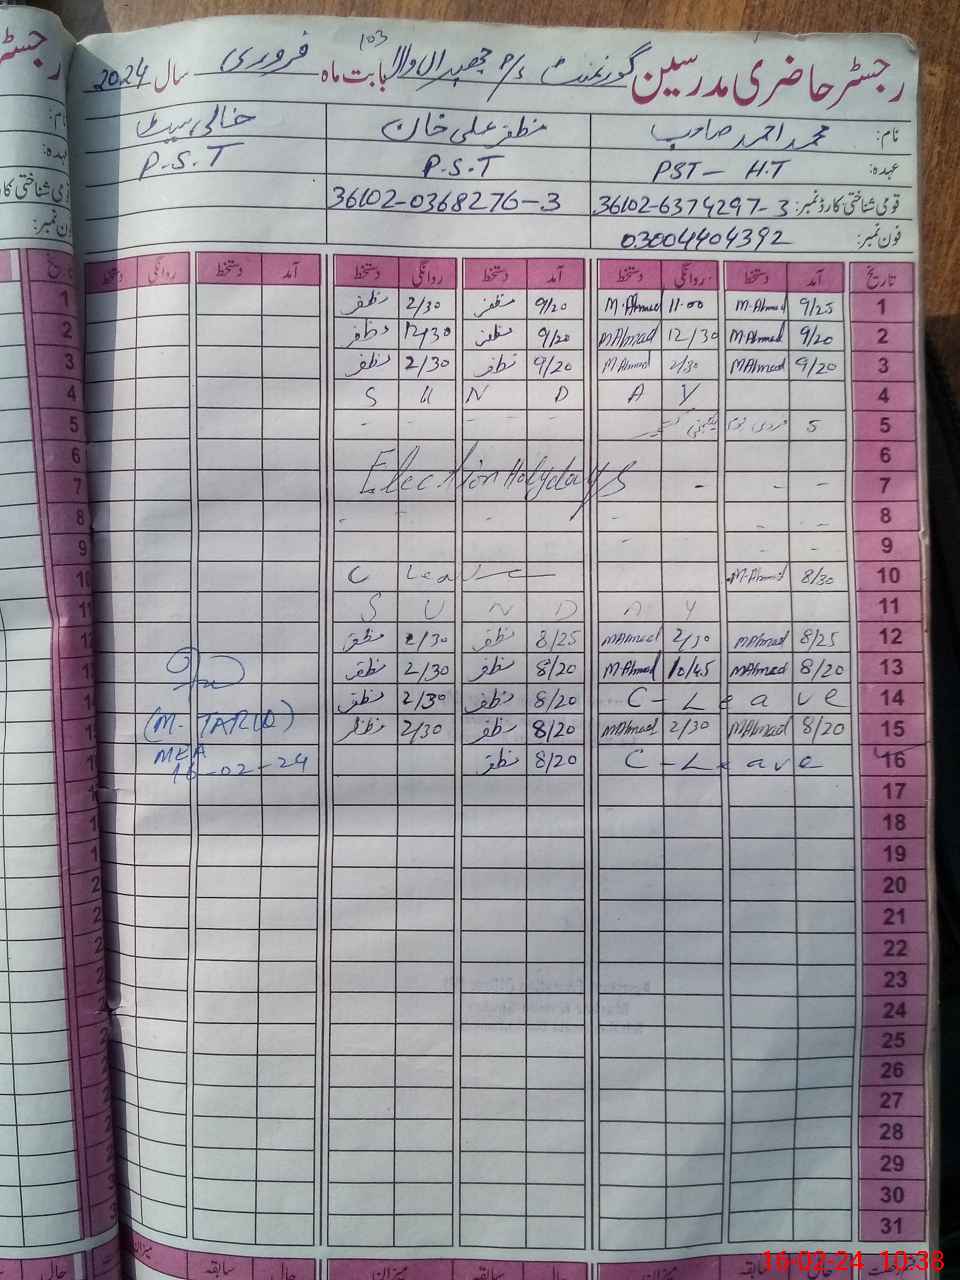 رجسٹر حاضری مدرسین گورنمنٹ بابت ماہ فروری سال 2024
103
نام: محمد احمد صاحب مظفر علی خان خالی سیٹ
عہدہ: PST - H.T P.S.T P.S.T
قومی شناختی کارڈ نمبر: 36102-6374297-3 36102-0368276-3
فون نمبر: 03004404392
تاریخ آمد دستخط روانگی دستخط آمد دستخط روانگی دستخط آمد دستخط روانگی دستخط
1 9/25 M.Ahmed 11:00 M.Ahmed 9/20 مظفر 2/30 مظفر
2 9/20 M.Ahmed 12/30 MAhmad 9/20 مظفر 12/30 مظفر
3 9/20 MAhmad 2/30 MAhmed 9/20 مظفر 2/30 مظفر
4 S U N D A Y
5 5 فروری یوم یکجہتی کشمیر
6
7 Election Holydays
8
9
10 8/30 M.Ahmed C Leave
11 S U N D A Y
12 8/25 MAhmed 2/30 MAhmed 8/25 مظفر 2/30 مظفر
13 8/20 MAhmed 10/45 MAhmed 8/20 مظفر 2/30 مظفر
14 C-Leave 8/20 مظفر 2/30 مظفر
15 8/20 MAhmed 2/30 MAhmed 8/20 مظفر 2/30 مظفر
16 C-Leave 8/20 مظفر
(M. TARIQ)
MEA
16-02-24
17
18
19
20
21
22
23
24
25
26
27
28
29
30
31
میزان سابقہ حالی میزان سابقہ حالی
16-02-24 10:38